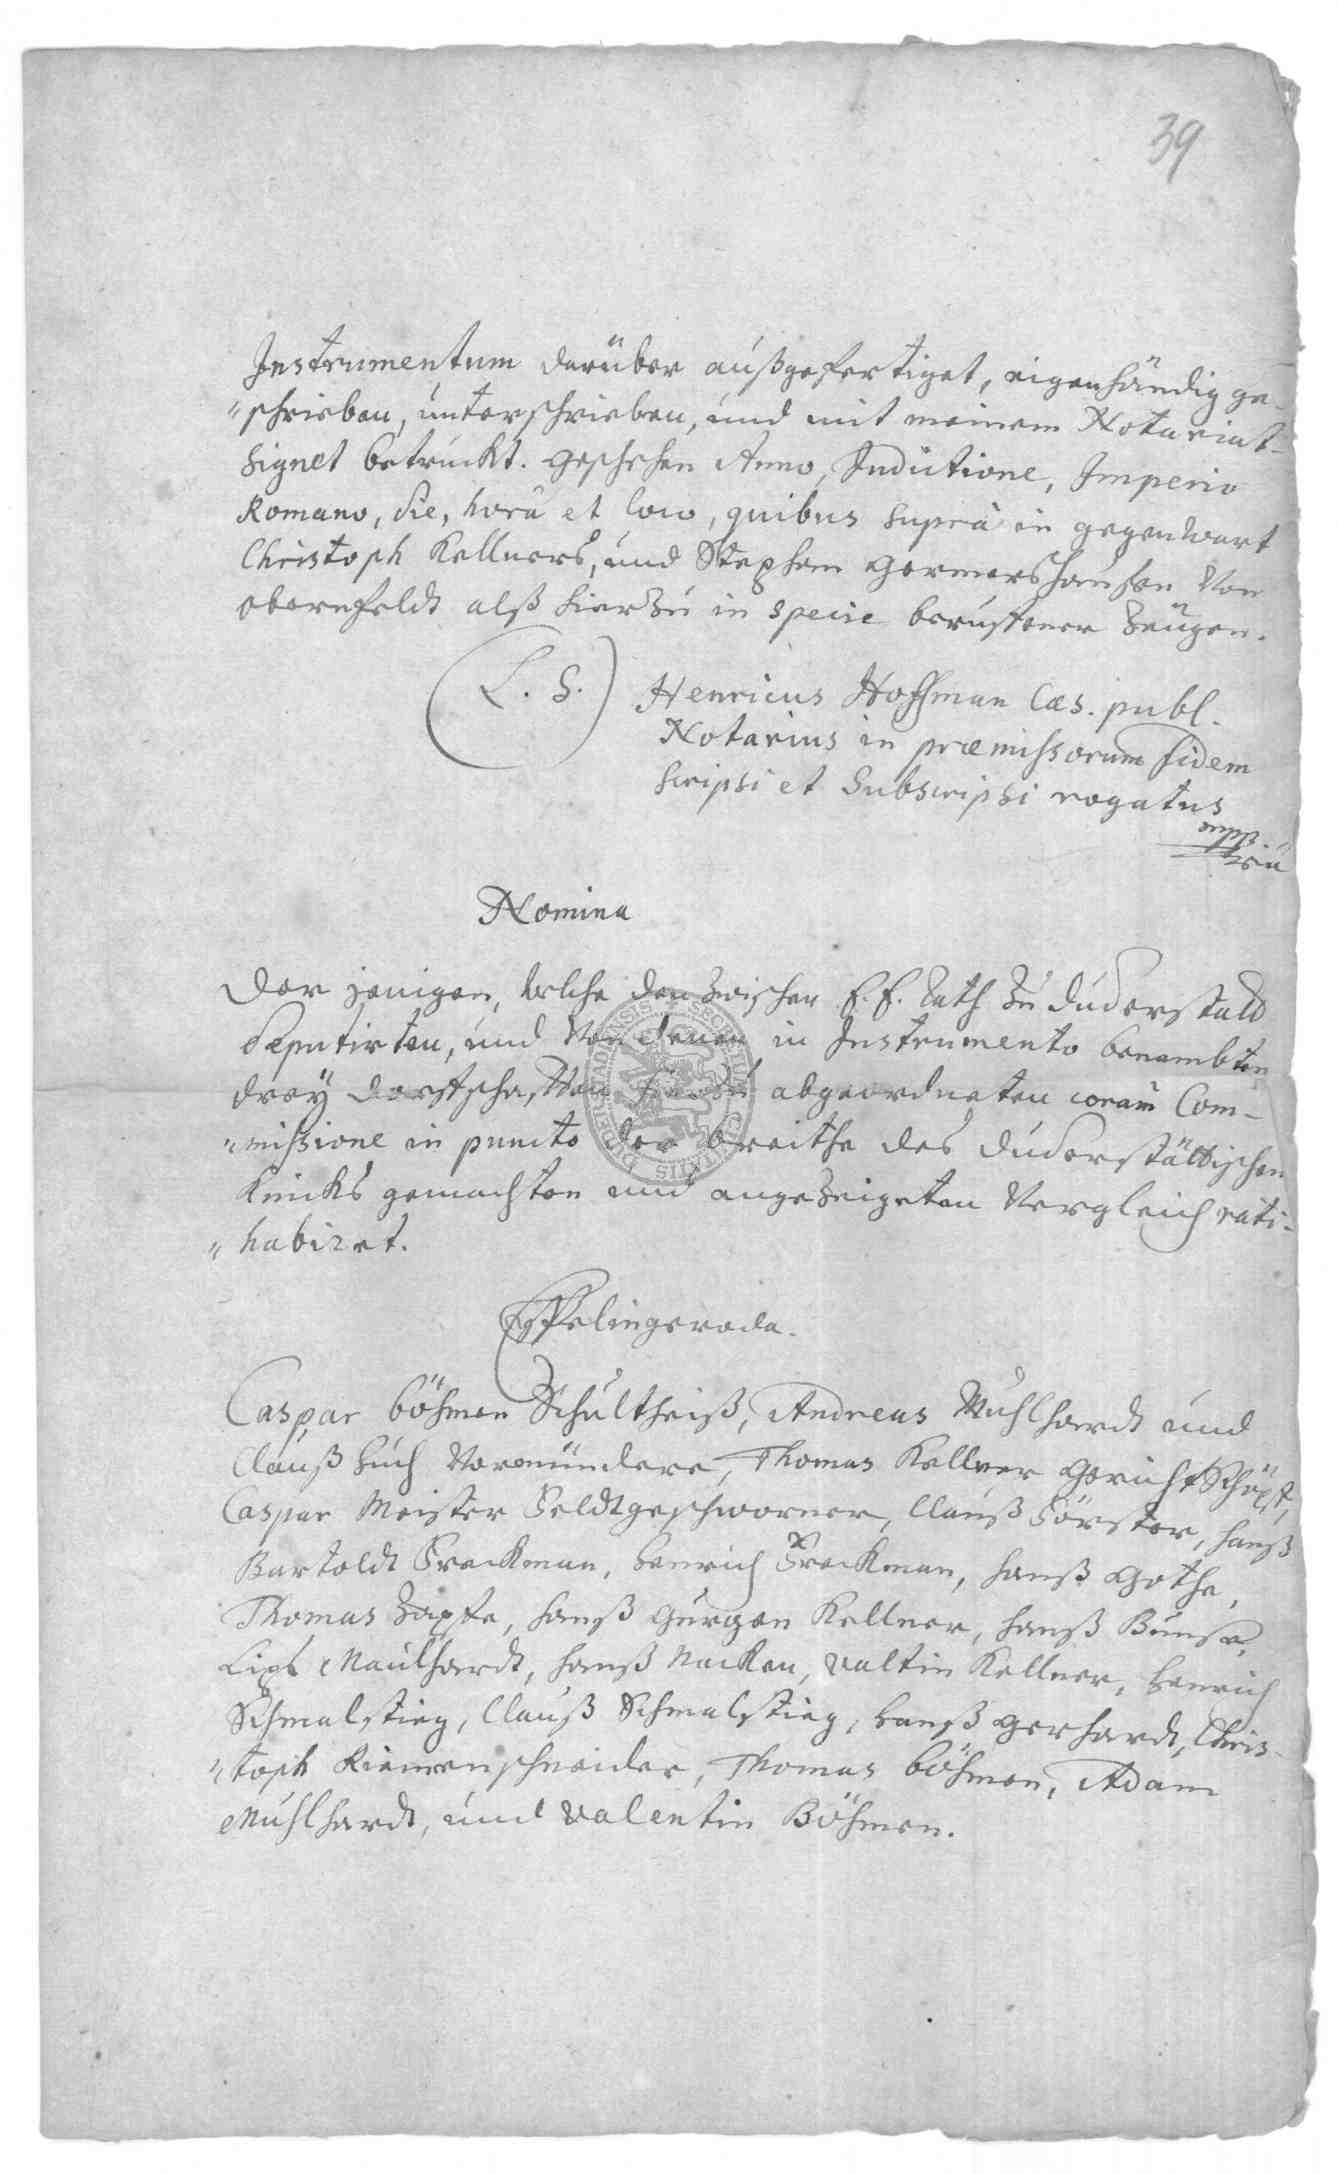 39
Instrumentum darüber außgefertiget, eigenhändig ge-
"schrieben, unterschrieben, und mit meinem Notariat-
Signet betruckt. Geschehen Anno, Indictione, Imperio
Romano, die, horâ et loco, quibus suprà in gegenwart
Christoph Kellners, und Stephan Germershausen Von
obernfeldt alß hierzu in specie beruffener Zeugen.
(L. S.) Henricus Hoffman Cæs. publ.
Notarius in præmissorum fidem
scripsi et subscripsi rogatus
mpp.
Nomina
Der jenigen, welche den zwischen E. E. Rath zu Duderstadt
Deputirten, und Von denen in Instrumento benambten
drey Dorfschafften hierzu abgeordneten coram Com-
"missione in puncto der breithe des Duderstättischen
Knicks gemachten und angezeigeten Vergleich rati-
"habiret.
Esplingeroda.
Caspar Böhmen Schultheiß, Andreas Muhlhardt und
Clauß Huch Vormündere, Thomas Kellner GerichtSchöpf,
Caspar Meister Feldtgeschworner, Clauß Förster, Hanß
Bartoldt Freckman, Henrich Freckman, Hanß Gothe,
Thomas Zapfe, Hanß Gürgen Kellner, Hanß Bunse,
Lips Maulhardt, Hanß Nacken, Valtin Kellner, Henrich
Schmalstieg, Clauß Schmalstieg, Hanß Gerhardt, Chris-
"toph Riemenschneider, Thomas Böhmen, Adam
Muhlhardt, und Valentin Böhmen.